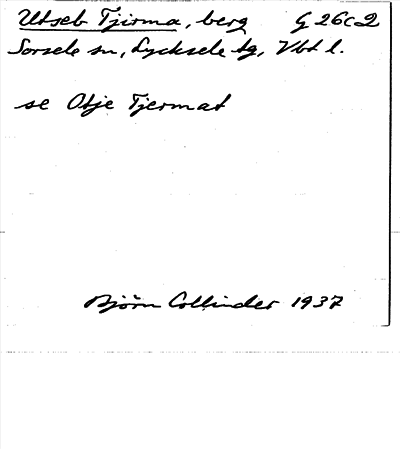 Utseb Tjirma, berg G 26c2
Sorsele sn, Lycksele tg, Vbt l.
se Otje Tjermat
Björn Collinder 1937